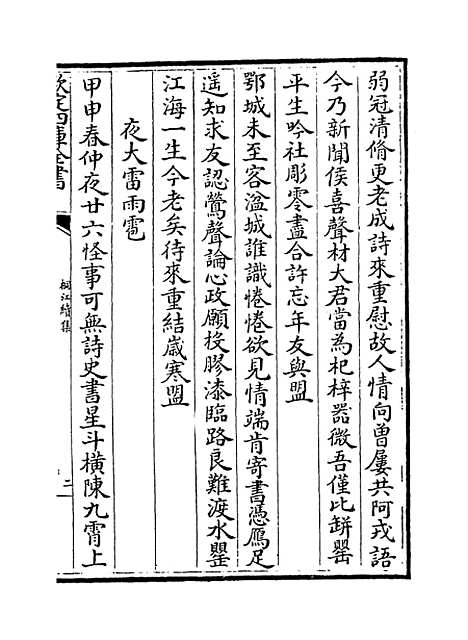 弱冠清脩更老成詩來重慰故人情向曽屢共阿戎語
今乃新聞侯喜聲材大君當為杞梓器微吾僅比缾罌
平生吟社彫零盡合許忘年友與盟
鄂城未至客湓城誰識惓惓欲見情端肯寄書憑鴈足
遥知求友認鶯聲論心政願投膠漆臨路良難渡水罌
江海一生今老矣待來重結嵗寒盟
夜大雷雨雹
甲申春仲夜廿六怪事可無詩史書星斗橫陳九霄上
欽定四庫全書
桐江續集
二